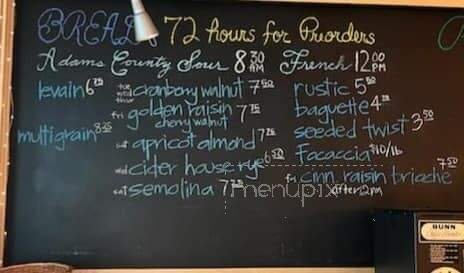 BREADS 72 hours for Preorders
Adams County Sour 8 30 AM French 12 00 PM
levain 6 75
tue wed thur cranberry walnut 7 50
fri golden raisin 7 75
cherry walnut
multigrain 8 25
sat apricot almond 7 75
wed cider house rye 6 50
sat semolina 7 75
rustic 5 50
baguette 4 25
seeded twist 3 50
Focaccia $10/lb
fri cinn. raisin brioche 7 50
after 12pm
menupix
BUNN